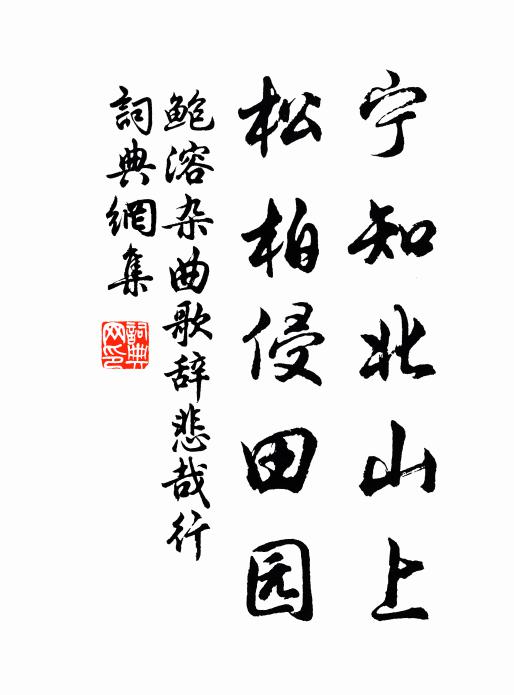 宁知北山上
松柏侵田园
鲍溶杂曲歌辞悲哉行
詞典網集
詞典
网印